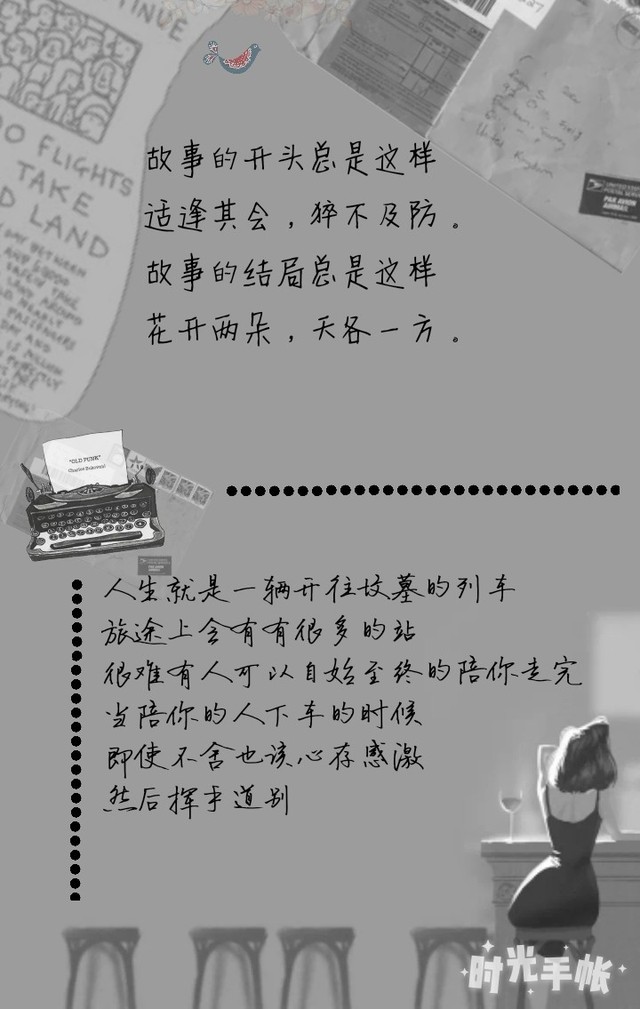 NTINUE
OO FLIGHTS
TAKE
D LAND
United
Kingdom
UNITED STATES
POSTAL SERVICE
PAR AVION
AIRMAIL
故事的开头总是这样
适逢其会，猝不及防。
故事的结局总是这样
花开两朵，天各一方。
"OLD PUNK"
人生就是一辆开往坟墓的列车
旅途上会有有很多的站
很难有人可以自始至终的陪你走完
当陪你的人下车的时候
即使不舍也该心存感激
然后挥手道别
时光手帐